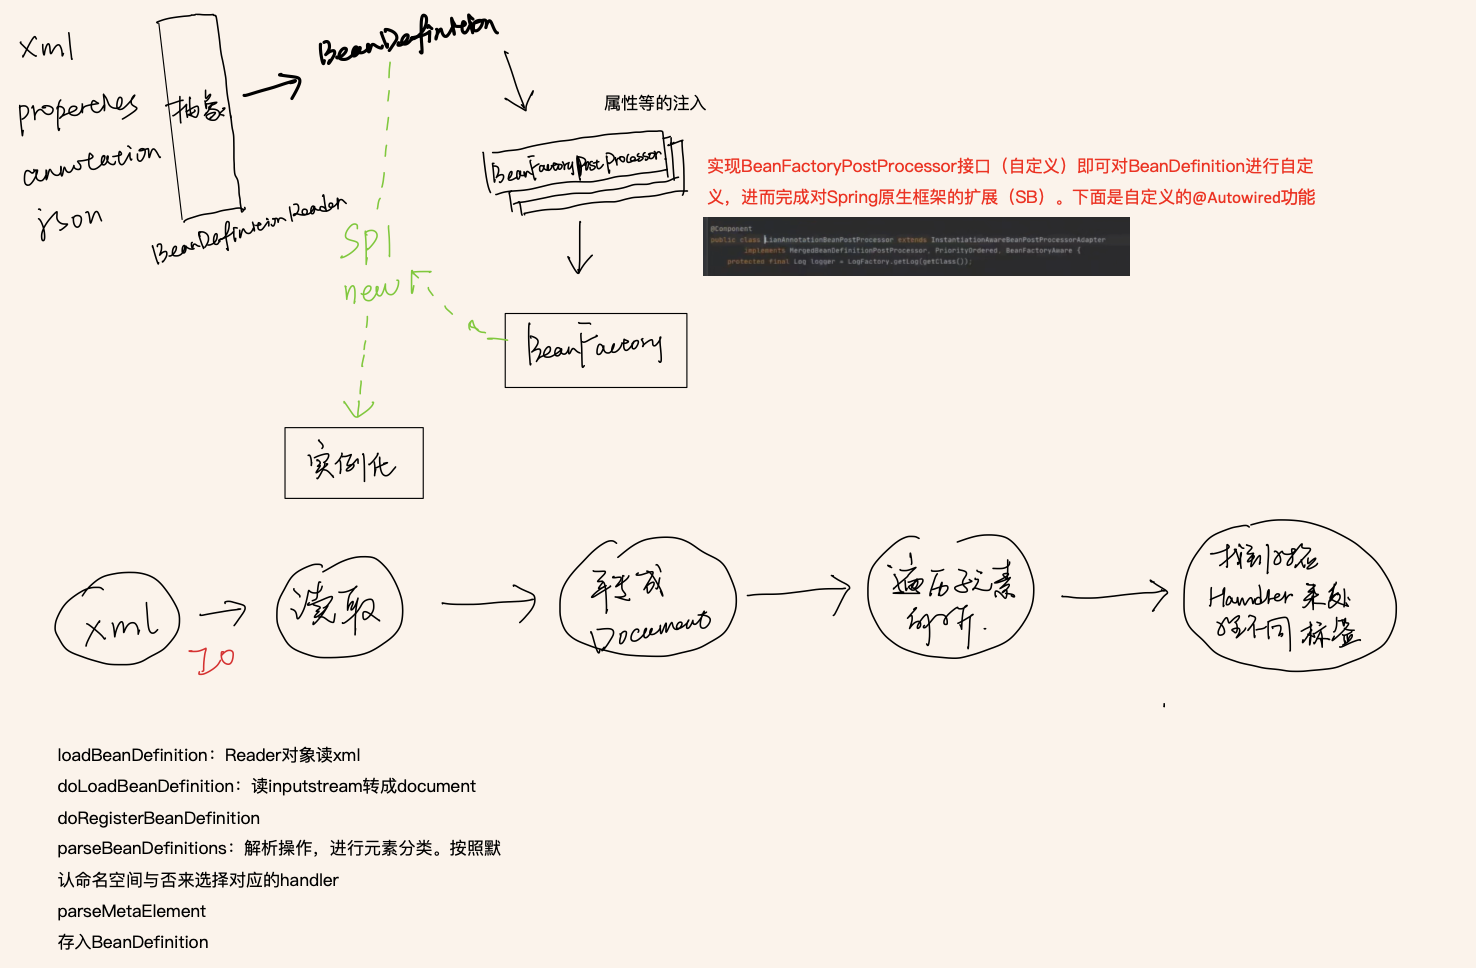 xml
properties
annotation
json
抽象
BeanDefinitionReader
BeanDefinition
SPI
new
属性等的注入
BeanFactoryPostProcessor
实现BeanFactoryPostProcessor接口（自定义）即可对BeanDefinition进行自定
义，进而完成对Spring原生框架的扩展（SB）。下面是自定义的@Autowired功能
@Component
public class LianAnnotationBeanPostProcessor extends InstantiationAwareBeanPostProcessorAdapter
implements MergedBeanDefinitionPostProcessor, PriorityOrdered, BeanFactoryAware {
protected final Log logger = LogFactory.getLog(getClass());
BeanFactory
实例化
xml
IO
读取
转成
Document
遍历子元素
解析.
找到对应
Handler 来处
理不同标签
loadBeanDefinition：Reader对象读xml
doLoadBeanDefinition：读inputstream转成document
doRegisterBeanDefinition
parseBeanDefinitions：解析操作，进行元素分类。按照默
认命名空间与否来选择对应的handler
parseMetaElement
存入BeanDefinition